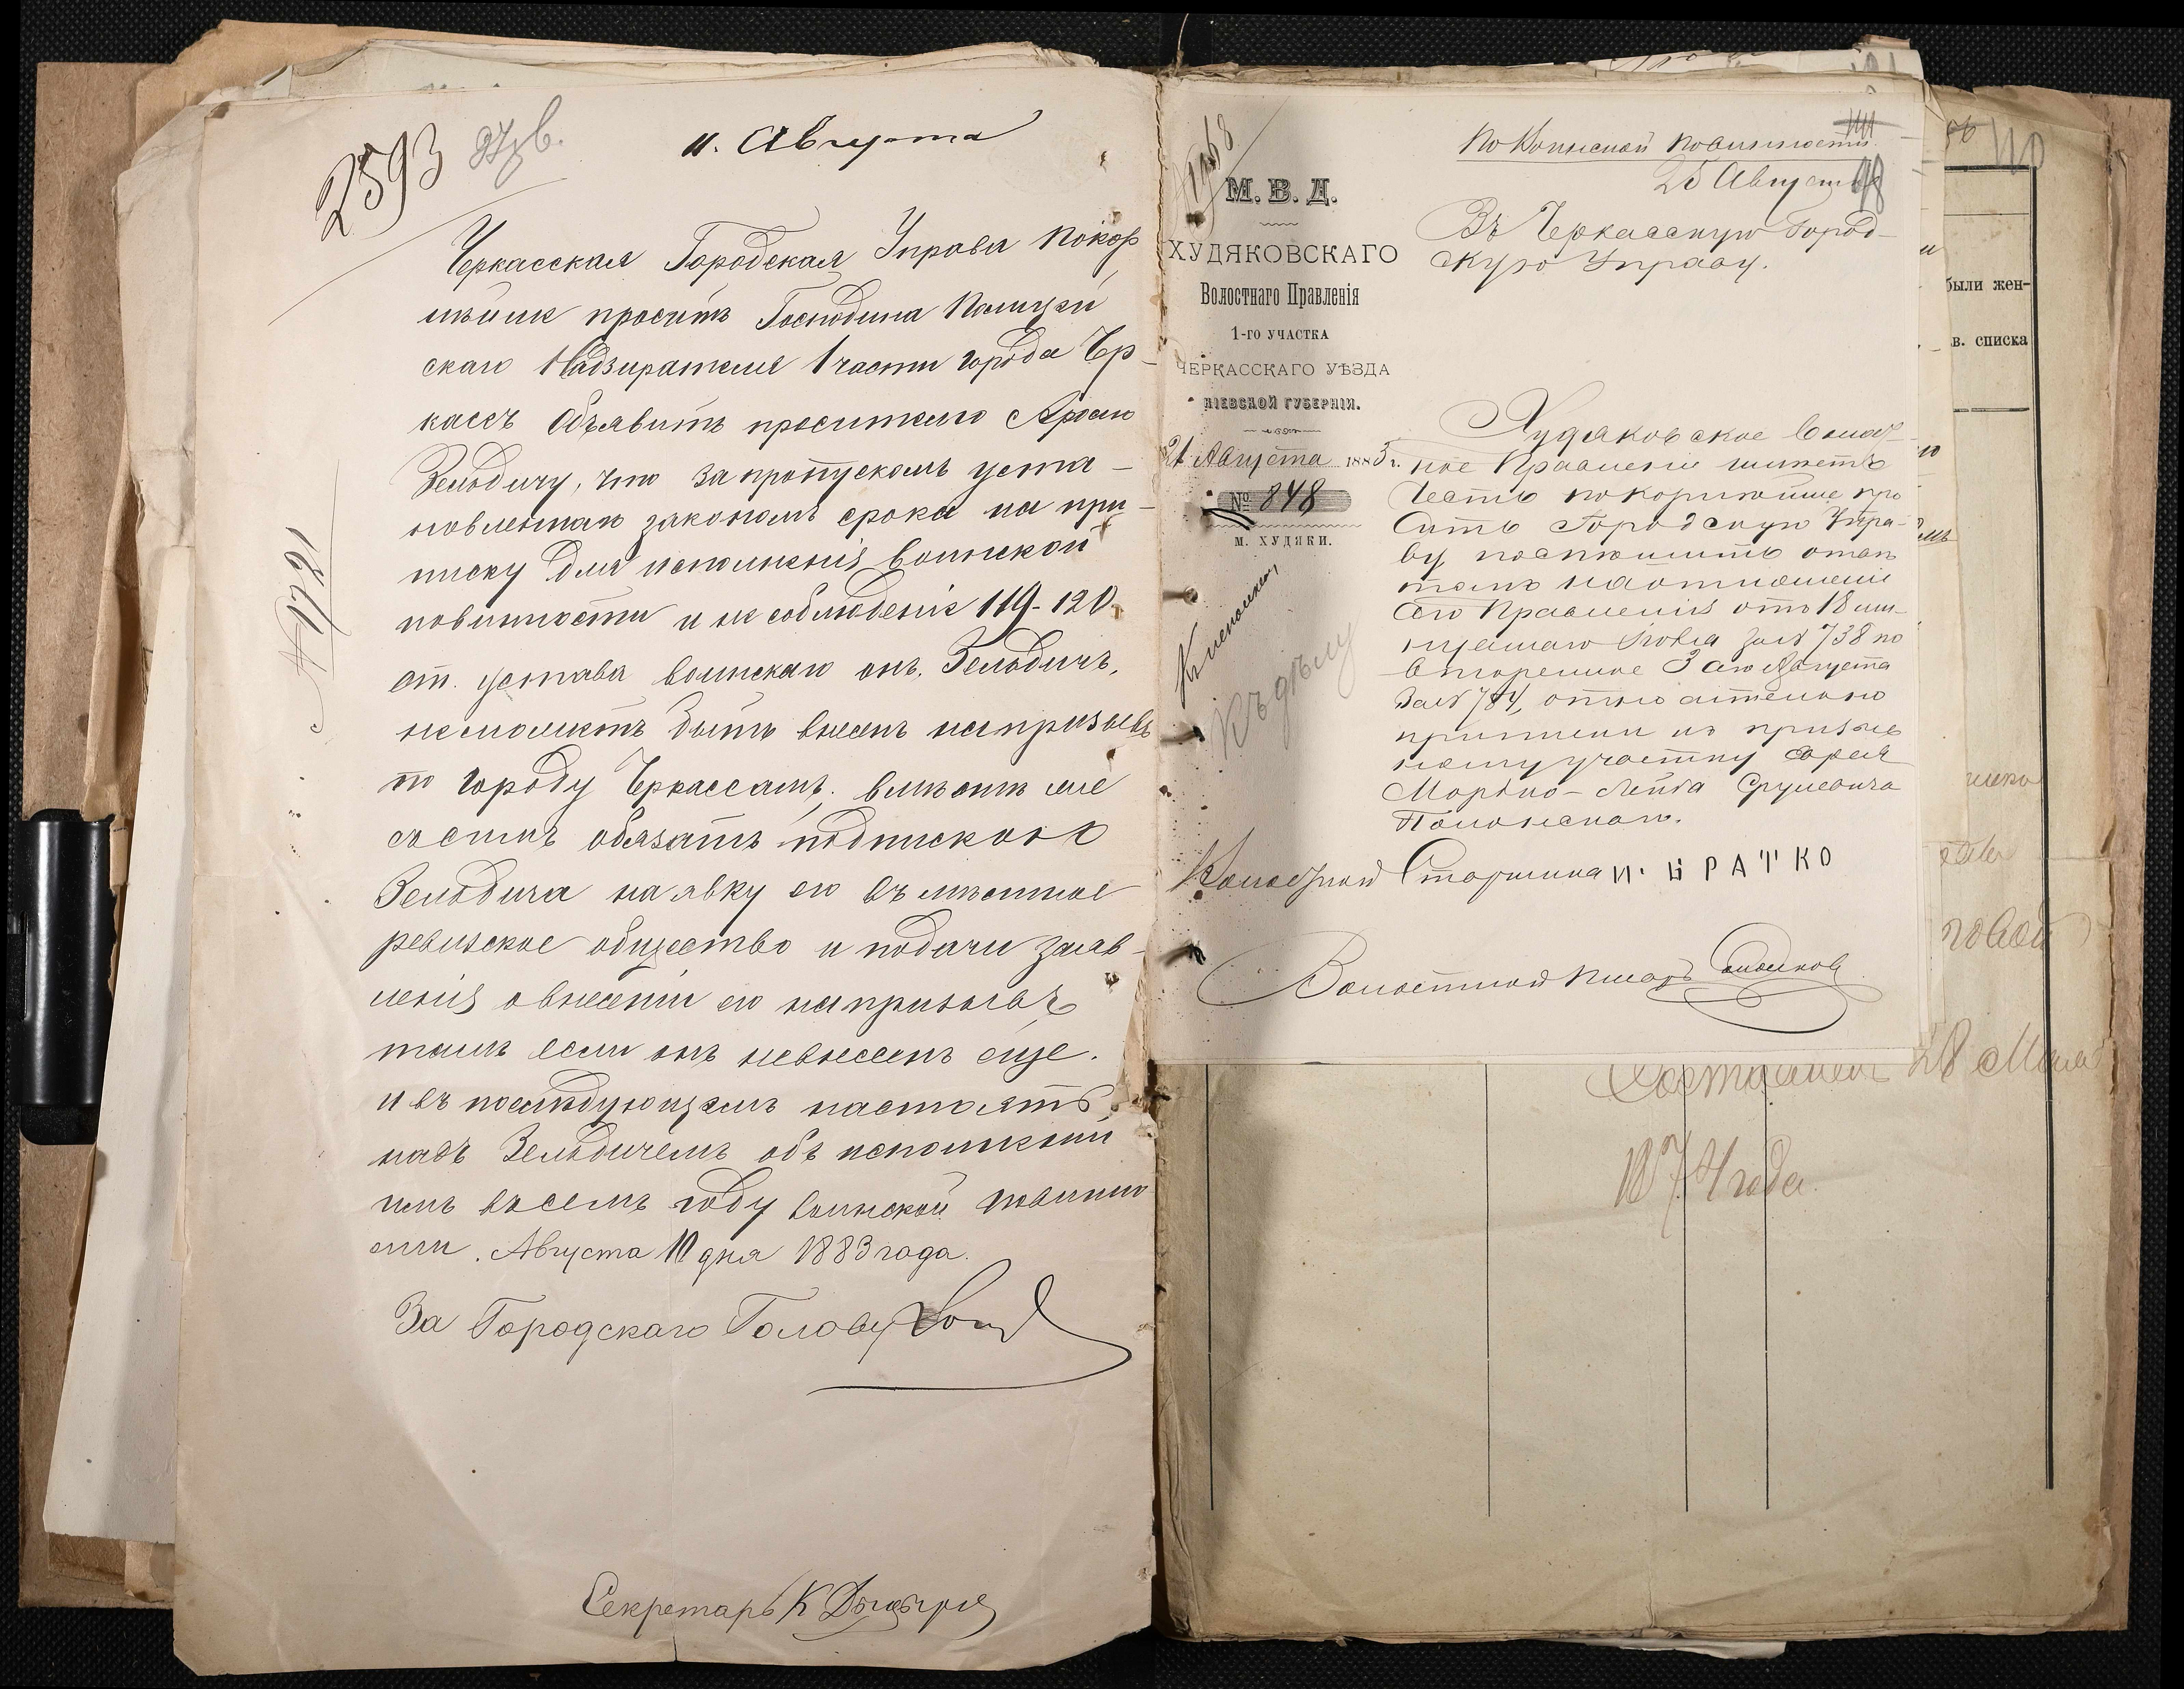 2593
11. Августа
Черкасская Городская Управа покор
нѣйше проситъ Господина Полицей
скаго Надзирателя 1 части города Чер-
кассъ объявить просителю Арону
Зельдичу, что за пропускомъ уста-
новленнаго закономъ срока на при-
писку для исполненія воинской
повинности и не соблюденіе 119-120
ст. устава воинскаго онъ, Зельдичъ,
неможетъ быть внесенъ на призывъ
по городу Черкассамъ; вмѣстѣ же
съ симъ обязать подпискою
Зельдича на явку его въ мѣстное
ревизское общество и подачи заяв-
ленія о внесеніи его на призывъ
тамъ если онъ невнесенъ еще.
и въ послѣдующемъ настоять
надъ Зельдичемъ объ исполненіи
имъ въ семъ году воинской повинно
сти. Августа 10 дня 1883 года.
За Городскаго Голову
Секретарь К
По Воинской повинности
25 Августа
98
М. В. Д.
ХУДЯКОВСКАГО
Волостнаго Правленія
1-го УЧАСТКА
ЧЕРКАССКАГО УѢЗДА
КІЕВСКОЙ ГУБЕРНІИ.
21 Августа 1883 г.
№ 848
м. ХУДЯКИ.
Въ Черкасскую Город-
скую Управу.
Худяковское Волост-
ное Правленіе имѣетъ
честь покорнѣйше про
сить Городскую Упра-
ву поспѣшить отвѣ
томъ на отношеніе
сего Правленія отъ 18 ми
нувшаго Іюля за № 738 и
вторенное 3 сего Августа
за № 784, относительно
приписки къ призыв
ному участку еврея
Мордко-Лейба Срулевича
Полонскаго.
Къ дѣлу
Волостной Старшина И. БРАТКО
Волостной Писарь
были жен-
в. списка
28 Мая
1874 года